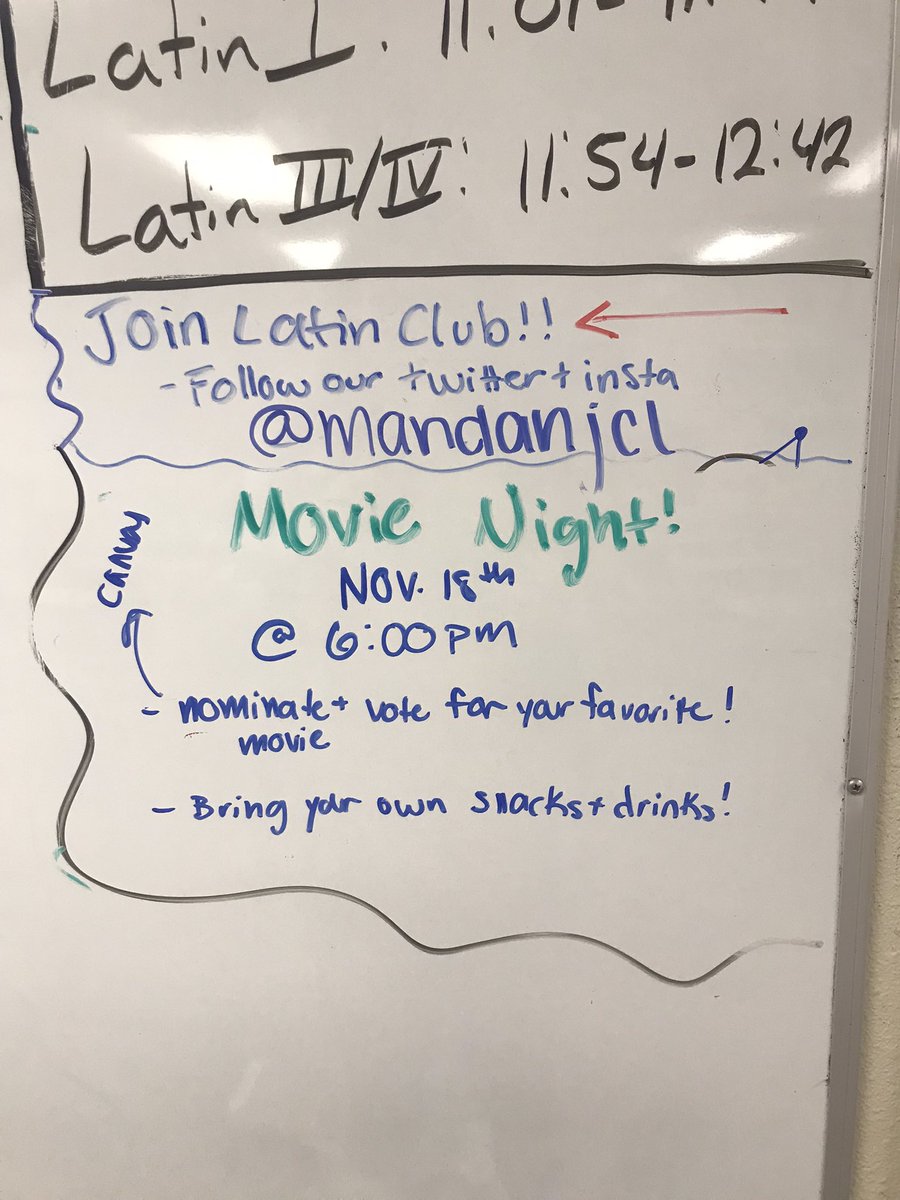 Latin I:
Latin III/IV: 11:54-12:42
Join Latin Club!!
- Follow our twitter + insta
@mandanjcl
Movie Night!
Nov. 18th
@ 6:00 pm
canvas
- nominate + vote for your favorite!
movie
- Bring your own snacks + drinks!